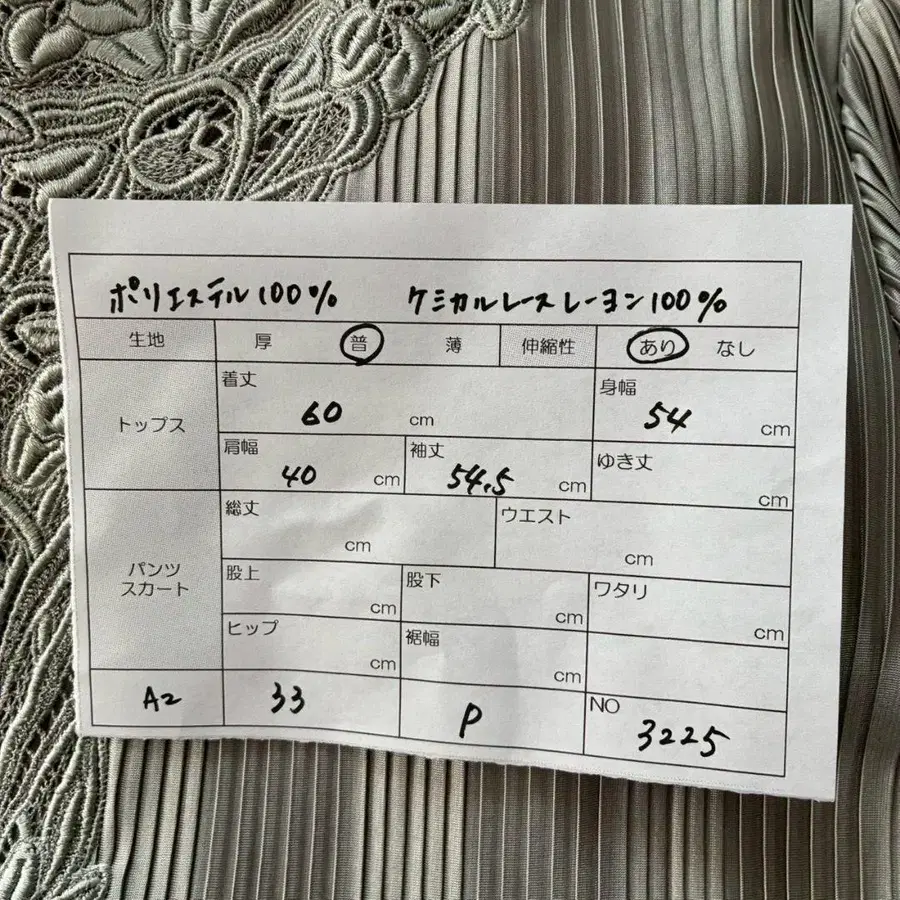 ポリエステル100% ケミカルレースレーヨン100%
生地 厚 普 薄 伸縮性 あり なし
トップス
着丈 60 cm 身幅 54 cm
肩幅 40 cm 袖丈 54.5 cm ゆき丈 cm
パンツ
スカート
総丈 cm ウエスト cm
股上 cm 股下 cm ワタリ cm
ヒップ cm 裾幅 cm
A2 33 P NO 3225